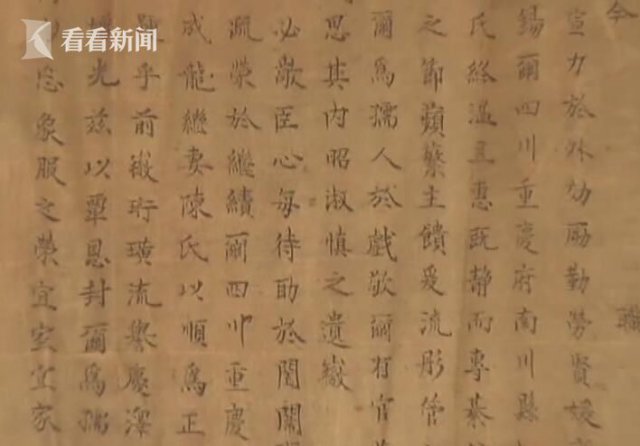 看看新闻
今
宣力於外劬勵勤勞賢媛
錫爾四川重慶府南川縣
氏終温且惠既静而專綦
之節蘋蘩主饋爰流彤管
爾爲孺人於戲敬爾有官
思其内昭淑慎之遺徽
必敬臣心每待助於閨闈
疏榮於繼續爾四川重慶
成龍繼妻陳氏以順爲正
乎前徽珩璜流譽慶澤
光茲以覃恩封爾爲孺
恩象服之榮宜室宜家